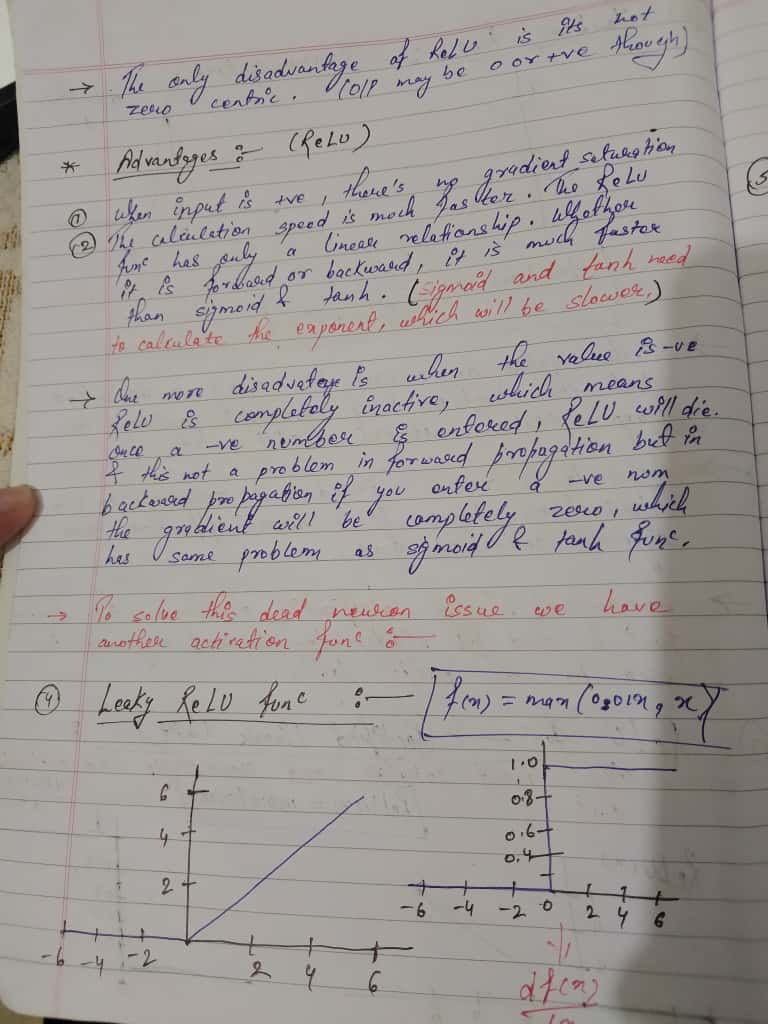 → The only disadvantage of ReLU is its not
zero centric. (O/P may be 0 or +ve though)
* Advantages :- (ReLU)
① When input is +ve, there's no gradient saturation
② The calculation speed is much faster. The ReLU
func has only a linear relationship. Whether
it is forward or backward, it is much faster
than sigmoid & tanh. (sigmoid and tanh need
to calculate the exponent, which will be slower.)
→ One more disadvatage is when the value is -ve
ReLU is completely inactive, which means
once a -ve number is entered, ReLU will die.
& this not a problem in forward propagation but in
backward propagation if you enter a -ve nom
the gradient will be completely zero, which
has same problem as sigmoid & tanh func.
→ To solve this dead neuron issue we have
another activation func :-
④ Leaky ReLU func :- f(x) = max(0.01x, x)
6
4
2
-6 -4 -2 2 4 6
1.0
0.8
0.6
0.4
-6 -4 -2 0 2 4 6
df(x)